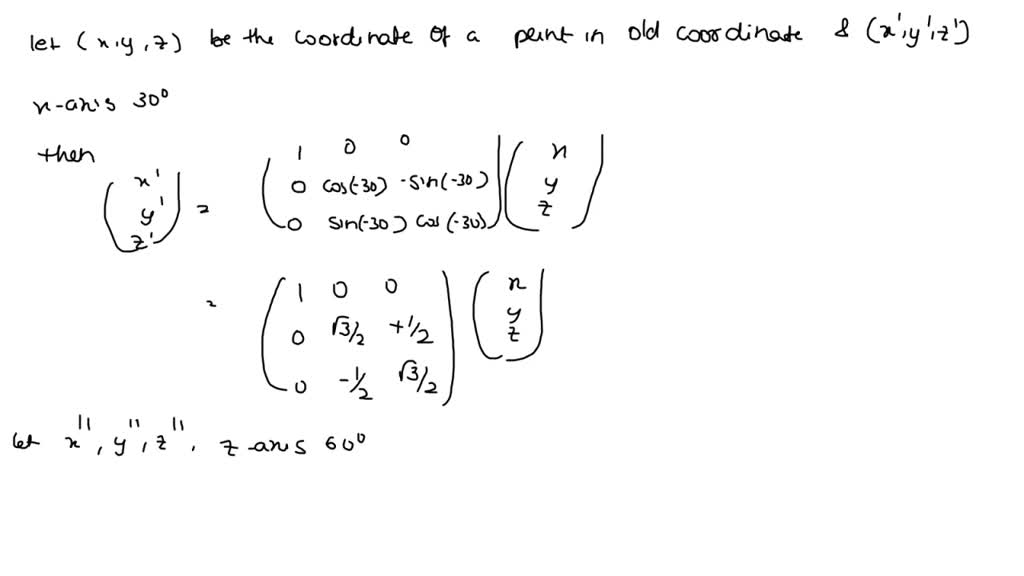 let (x,y,z) be the coordinate of a point in old coordinate & (x',y',z')
x-axis 30°
then
(x' y' z') = (1 0 0
0 cos(-30) -sin(-30)
0 sin(-30) cos(-30)) (x y z)
= (1 0 0
0 √3/2 +1/2
0 -1/2 √3/2) (x y z)
let x'', y'', z'', z-axis 60°